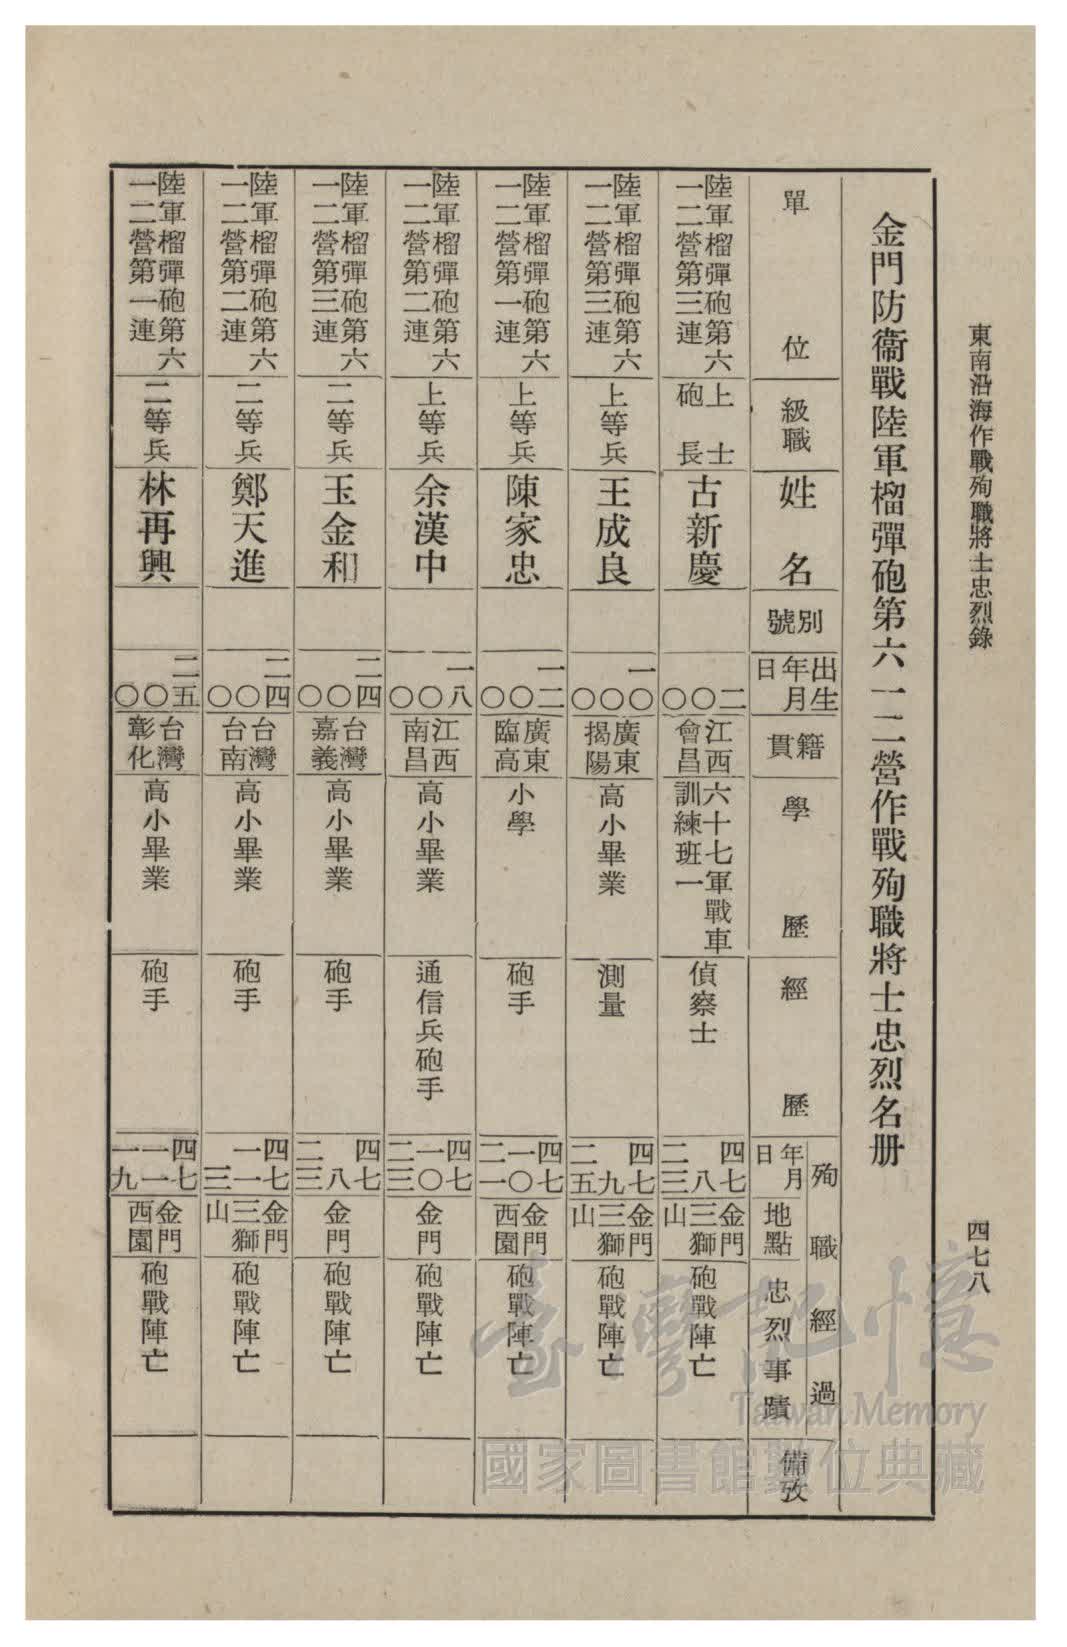 東南沿海作戰殉職將士忠烈錄
四七八
金門防衞戰陸軍榴彈砲第六一二營作戰殉職將士忠烈名册
單位
級職
姓名
別號
出生年月日
籍貫
學歷
經歷
殉職經過
年月日
地點
忠烈事蹟
備攷
陸軍榴彈砲第六
一二營第三連
上士
砲長
古新慶
二〇〇〇
江西
會昌
六十七軍戰車
訓練班一
偵察士
四七八二三
金門
三獅
山
砲戰陣亡
陸軍榴彈砲第六
一二營第三連
上等兵
王成良
一〇〇〇
廣東
揭陽
高小畢業
測量
四七九二五
金門
三獅
山
砲戰陣亡
陸軍榴彈砲第六
一二營第一連
上等兵
陳家忠
一二〇〇
廣東
臨高
小學
砲手
四七一〇二一
金門
西園
砲戰陣亡
陸軍榴彈砲第六
一二營第二連
上等兵
余漢中
一八〇〇
江西
南昌
高小畢業
通信兵砲手
四七一〇二三
金門
砲戰陣亡
陸軍榴彈砲第六
一二營第三連
二等兵
玉金和
二四〇〇
台灣
嘉義
高小畢業
砲手
四七八二三
金門
砲戰陣亡
陸軍榴彈砲第六
一二營第二連
二等兵
鄭天進
二四〇〇
台灣
台南
高小畢業
砲手
四七一一三
金門
三獅
山
砲戰陣亡
陸軍榴彈砲第六
一二營第一連
二等兵
林再興
二五〇〇
台灣
彰化
高小畢業
砲手
四七一一一九
金門
西園
砲戰陣亡
臺灣記憶
Taiwan Memory
國家圖書館數位典藏